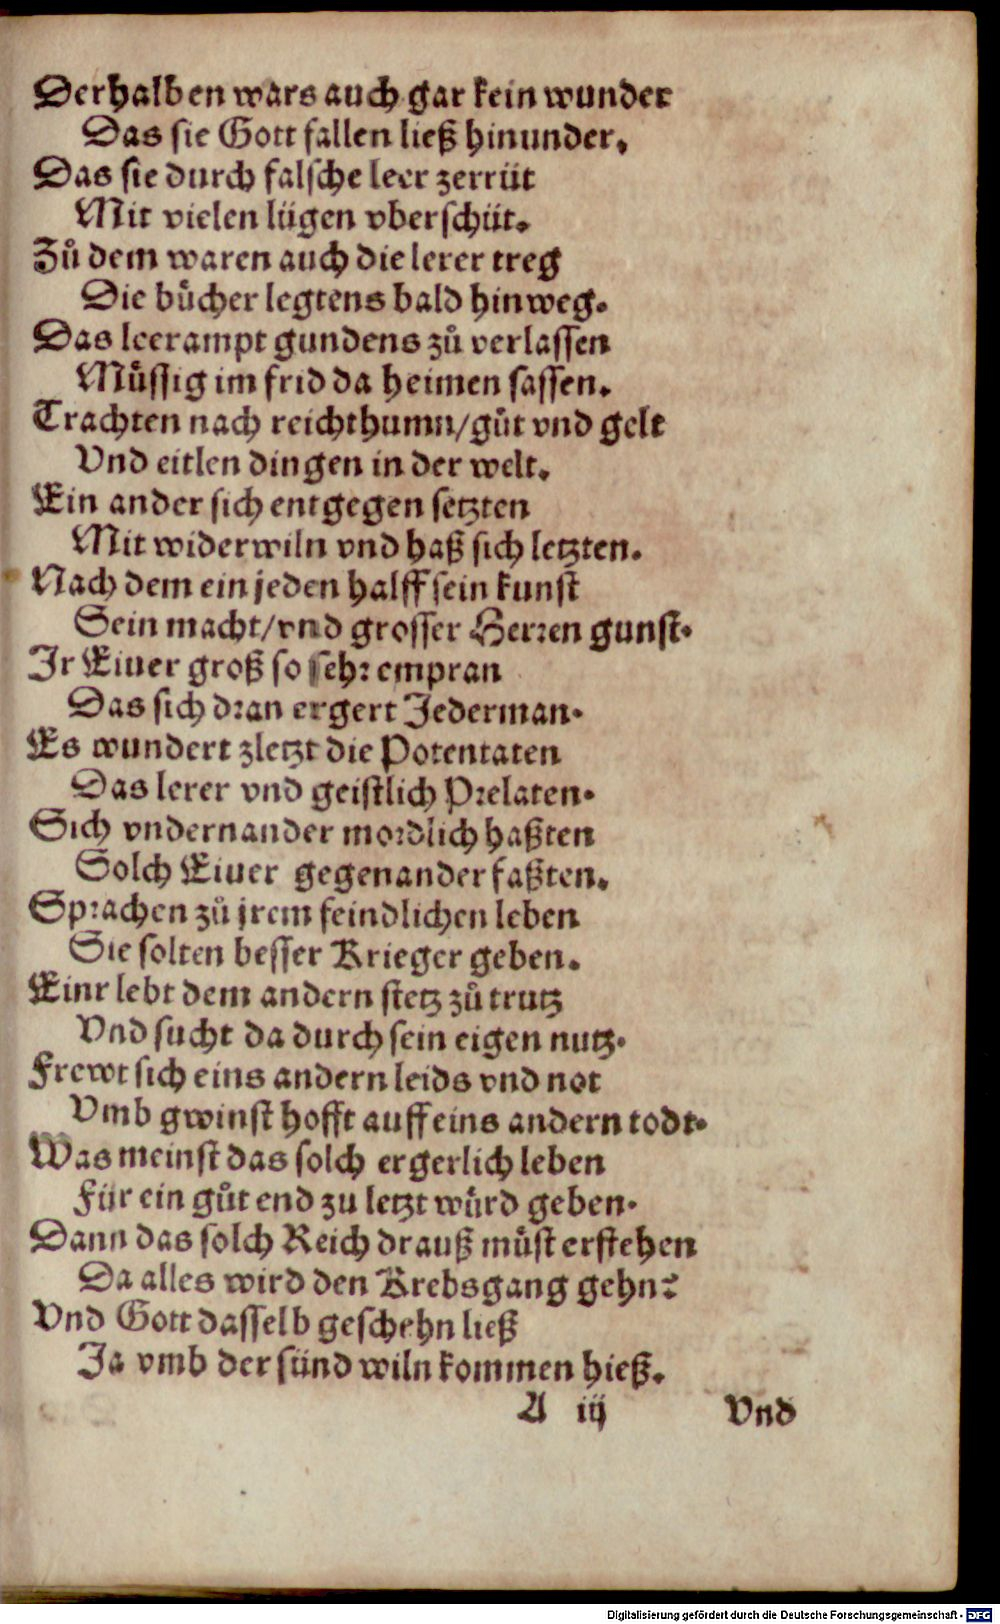 Derhalben wars auch gar kein wunder
Das sie Gott fallen ließ hinunder.
Das sie durch falsche leer zerrüt
Mit vielen lügen vberschüt.
Zů dem waren auch die lerer treg
Die bůcher legtens bald hinweg.
Das leerampt gundens zů verlassen
Můssig im frid da heimen sassen.
Trachten nach reichthumn/gůt vnd gelt
Vnd eitlen dingen in der welt.
Ein ander sich entgegen setzten
Mit widerwiln vnd haß sich letzten.
Nach dem ein jeden halff sein kunst
Sein macht/vnd grosser Herren gunst.
Ir Eiuer groß so sehr empran
Das sich dran ergert Jederman.
Es wundert zletzt die Potentaten
Das lerer vnd geistlich Prelaten.
Sich vndernander mordlich haßten
Solch Eiuer gegenander faßten.
Sprachen zů jrem feindlichen leben
Sie solten besser Krieger geben.
Einr lebt dem andern stetz zů trutz
Vnd sucht da durch sein eigen nutz.
Frewt sich eins andern leids vnd not
Vmb gwinst hofft auff eins andern todt.
Was meinst das solch ergerlich leben
Für ein gůt end zu letzt wůrd geben.
Dann das solch Reich drauß můst erstehen
Da alles wird den Krebsgang gehn?
Vnd Gott dasselb geschehn ließ
Ja vmb der sünd wiln kommen hieß.
A iij Vnd
Digitalisierung gefördert durch die Deutsche Forschungsgemeinschaft - DFG